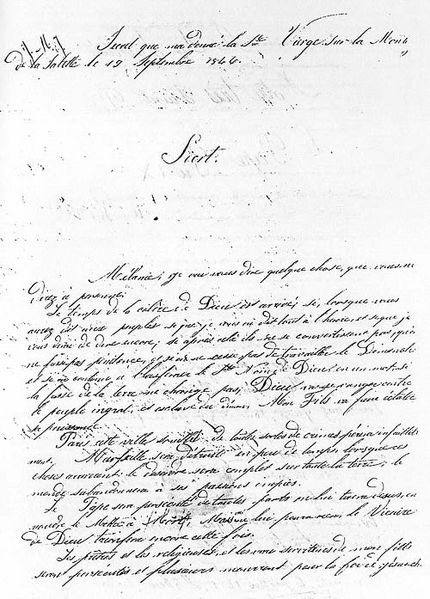 J. M. J.
Secret que m'a donné la Ste Vierge sur la Mont
de la Salette le 19 Septembre 1846.
Secrt.
Mélanie, je vais vous dire quelque chose, que vous ne
direz à personne:
Le temps de la colère de Dieu est arrivé; si, lorsque vous
aurez dit aux peuples ce que je vous ai dit tout à l'heure, et ce que je
vous dirai de dire encore; si après cela ils ne se convertissent pas, qu'on
ne fasse pas pénitence, et si on ne cesse pas de travailler le Dimanche
et si on continue à blasphémer le St Nom de Dieu, en un mot, si
la face de la terre ne change pas, Dieu va se venger contre
le peuple ingrat, et esclave du démon. Mon Fils va faire éclater
sa puissance.
Paris cette ville souillée de toutes sortes de crimes périra infailliblement
ment. Marseille sera détruite en peu de temps, lorsque ces
choses arriveront le désordre sera complet sur toute la terre; le
monde s'abandonnera à ses passions impies.
Le Pape sera persécuté de toutes parts on lui tirera dessus, on
voudra le mettre à mort, mais on ne lui pourra rien, le Vicaire
de Dieu triomphera encore cette fois.
Les prêtres et les religieuses, et les vrai serviteurs de mon fils
seront persécutés et plusieurs mourront pour la foi de Jésus-ch